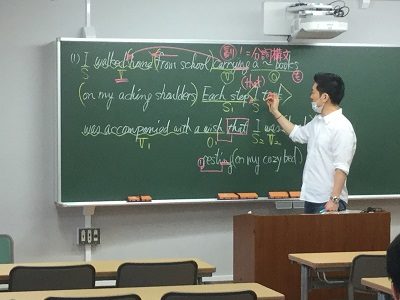 副！=分詞構文
(1) I walked (home) (from school) carrying a ~ books
S V V O
(that)
(on my aching shoulders) Each step I took
S1 S
was accompanied with a wish that I was
V1 O1 S2 V2
resting (on my cozy bed)